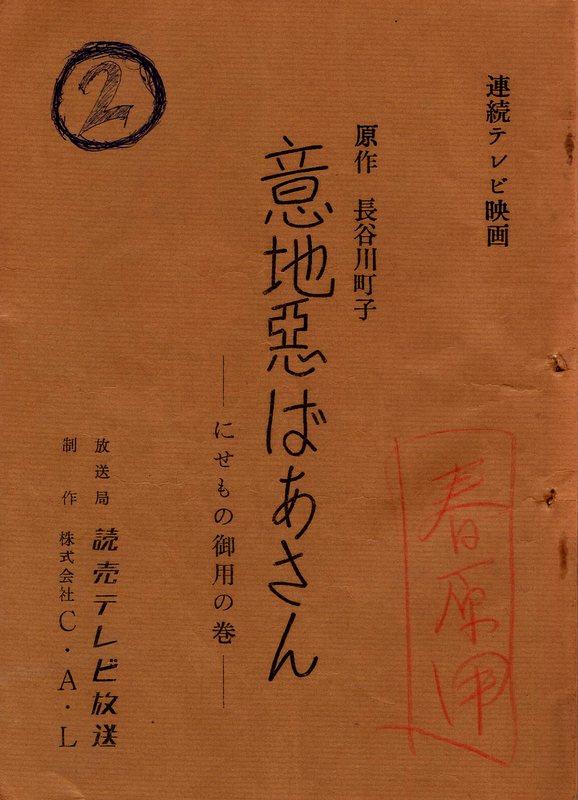 ②
連続テレビ映画
原作 長谷川町子
意地悪ばあさん
―にせもの御用の巻―
放送局 読売テレビ放送
制作 株式会社C・A・L
春原用